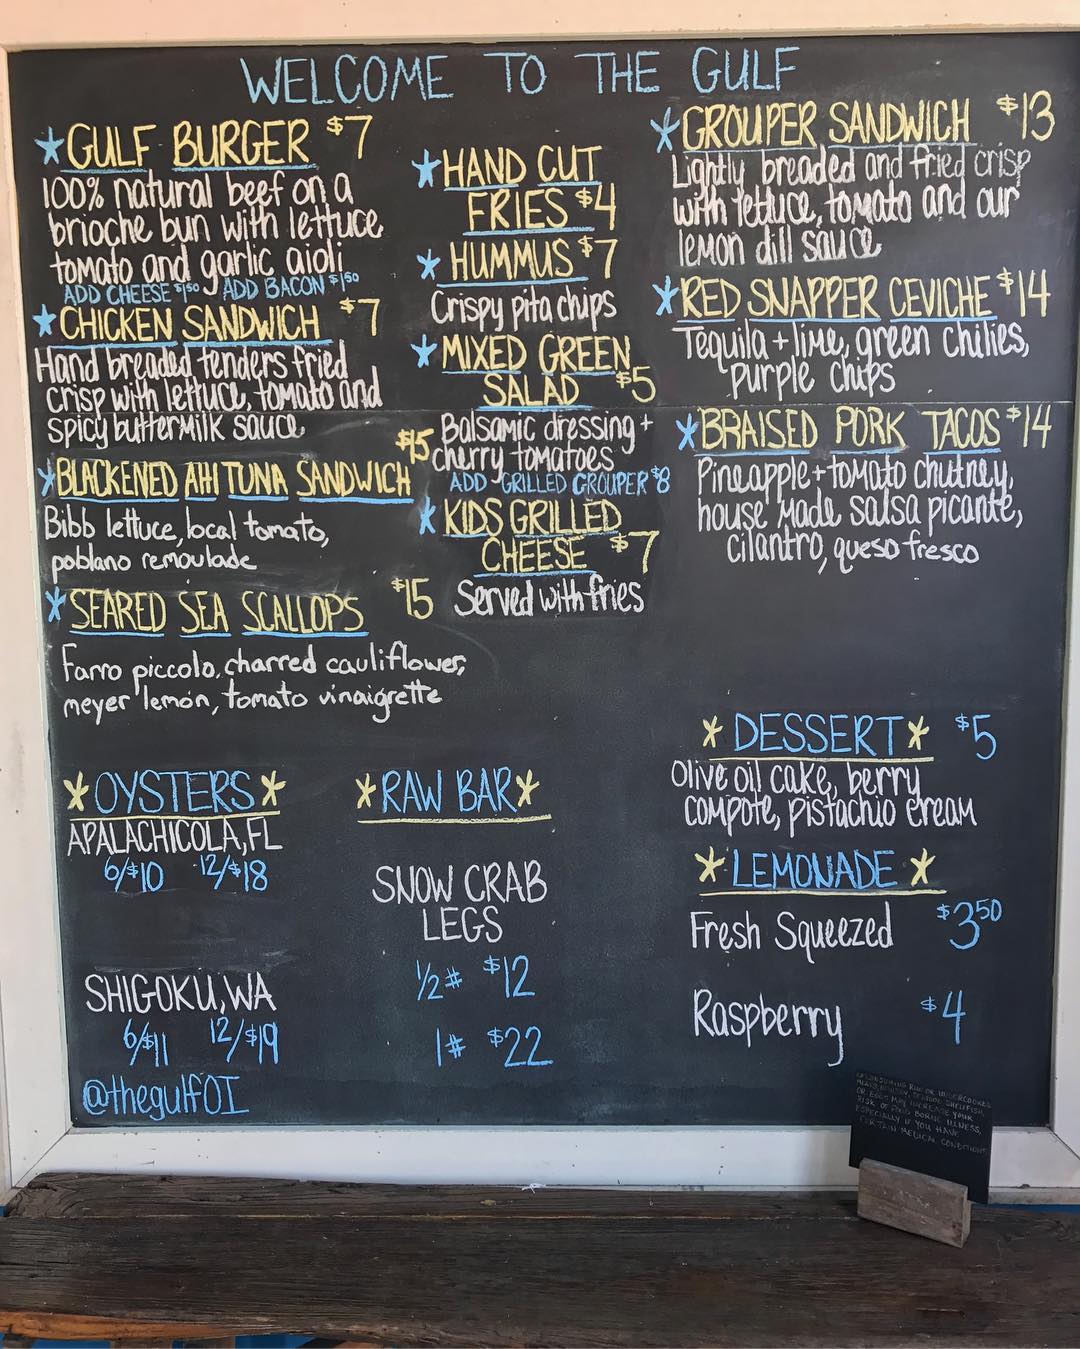 WELCOME TO THE GULF
*GULF BURGER $7
100% natural beef on a
brioche bun with lettuce
tomato and garlic aioli
ADD CHEESE $1.50 ADD BACON $1.50
*CHICKEN SANDWICH $7
Hand breaded tenders fried
crisp with lettuce, tomato and
spicy buttermilk sauce
$15
*BLACKENED AHI TUNA SANDWICH
Bibb lettuce, local tomato,
poblano remoulade
*SEARED SEA SCALLOPS $15
Farro piccolo, charred cauliflower,
meyer lemon, tomato vinaigrette
*HAND CUT
FRIES $4
*HUMMUS $7
Crispy pita chips
*MIXED GREEN
SALAD $5
Balsamic dressing +
cherry tomatoes
ADD GRILLED GROUPER $8
*KIDS GRILLED
CHEESE $7
Served with fries
*GROUPER SANDWICH $13
Lightly breaded and fried crisp
with lettuce, tomato and our
lemon dill sauce
*RED SNAPPER CEVICHE $14
Tequila + lime, green chilies,
purple chips
*BRAISED PORK TACOS $14
Pineapple + tomato chutney,
house made salsa picante,
cilantro, queso fresco
*OYSTERS*
APALACHICOLA, FL
6/$10 12/$18
SHIGOKU, WA
6/$11 12/$19
@thegulfOI
*RAW BAR*
SNOW CRAB
LEGS
1/2# $12
1# $22
*DESSERT* $5
Olive oil cake, berry
compote, pistachio cream
*LEMONADE*
Fresh Squeezed $3.50
Raspberry $4
CONSUMING RAW OR UNDERCOOKED
MEATS, POULTRY, SEAFOOD, SHELLFISH,
OR EGGS MAY INCREASE YOUR
RISK OF FOOD BORNE ILLNESS,
ESPECIALLY IF YOU HAVE
CERTAIN MEDICAL CONDITIONS